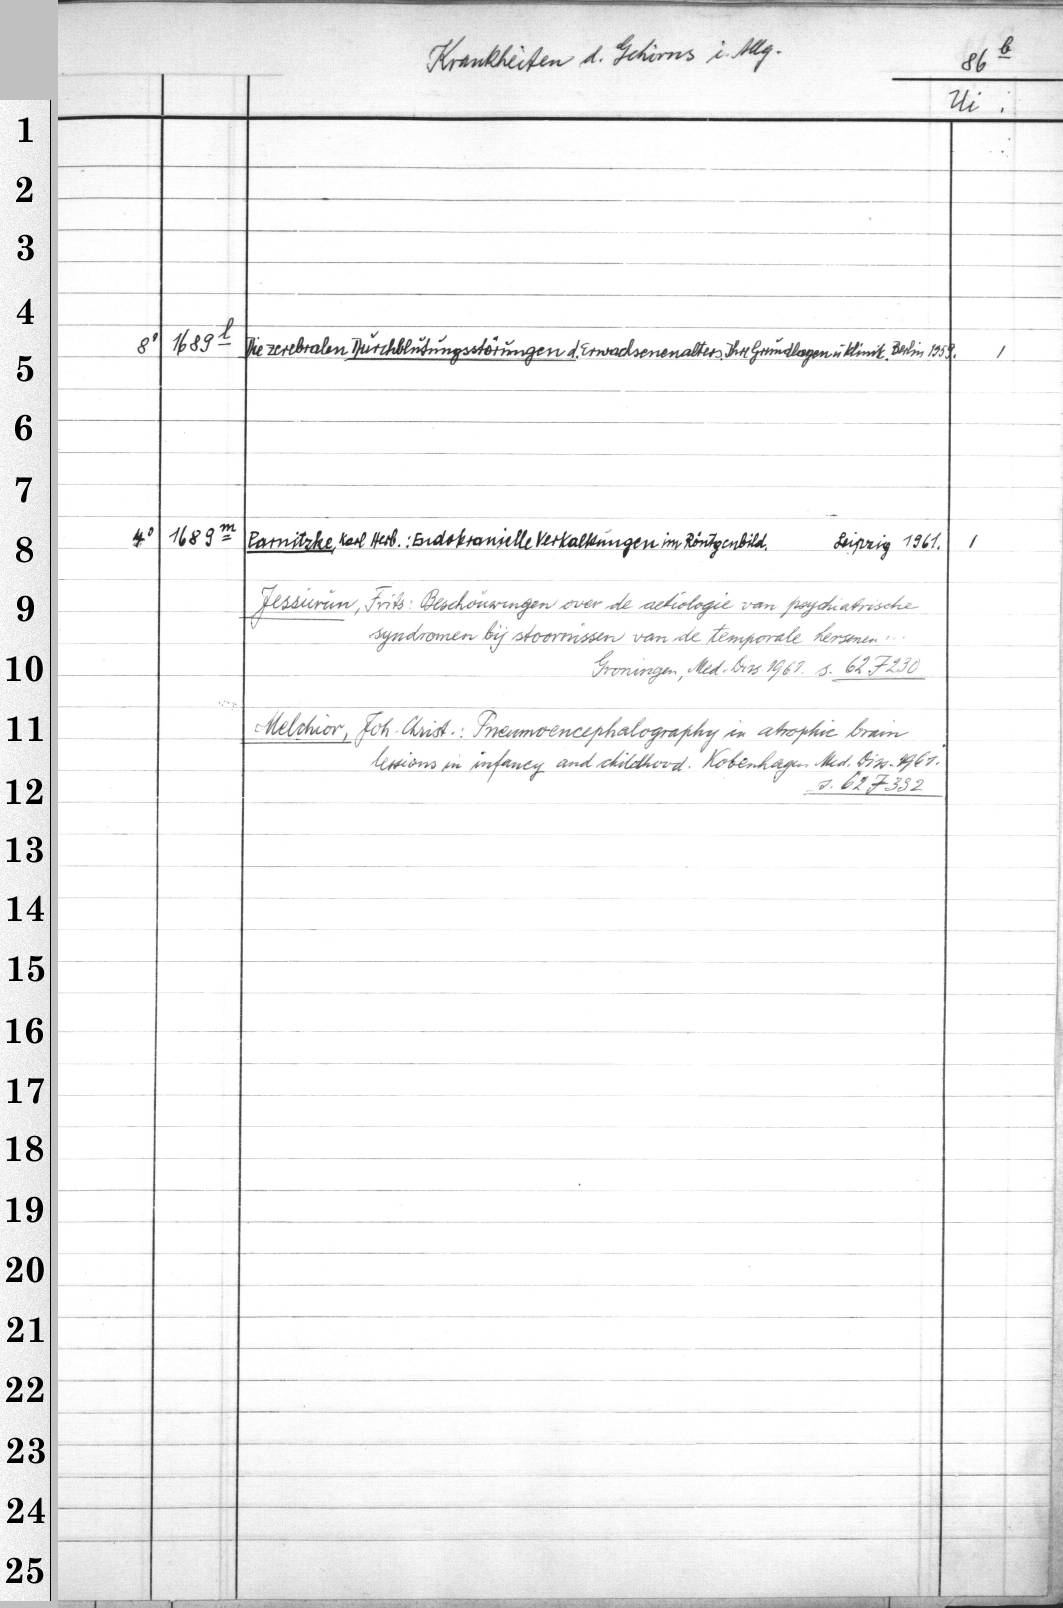 Krankheiten d. Gehirns i. Allg.
86 b
Ui
1
2
3
4
8° 1689 l Die zerebralen Durchblutungsstörungen d. Erwachsenenalters. Ihre Grundlagen u. Klinik. Berlin 1959. 1
5
6
7
4° 1689 m Parnitzke, Karl Herb.: Endokranielle Verkalkungen im Röntgenbild. Leipzig 1961. 1
8
9 Jessurun, Frits: Beschouwingen over de aetiologie van psychiatrische
syndromen bij stoornissen van de temporale hersenen ...
10 Groningen, Med. Diss 1961. s. 62 F 230
11 Melchior, Joh. Christ.: Pneumoencephalography in atrophic brain
lesions in infancy and childhood. Kobenhagen Med. Diss. 1961.
12 s. 62 F 332
13
14
15
16
17
18
19
20
21
22
23
24
25